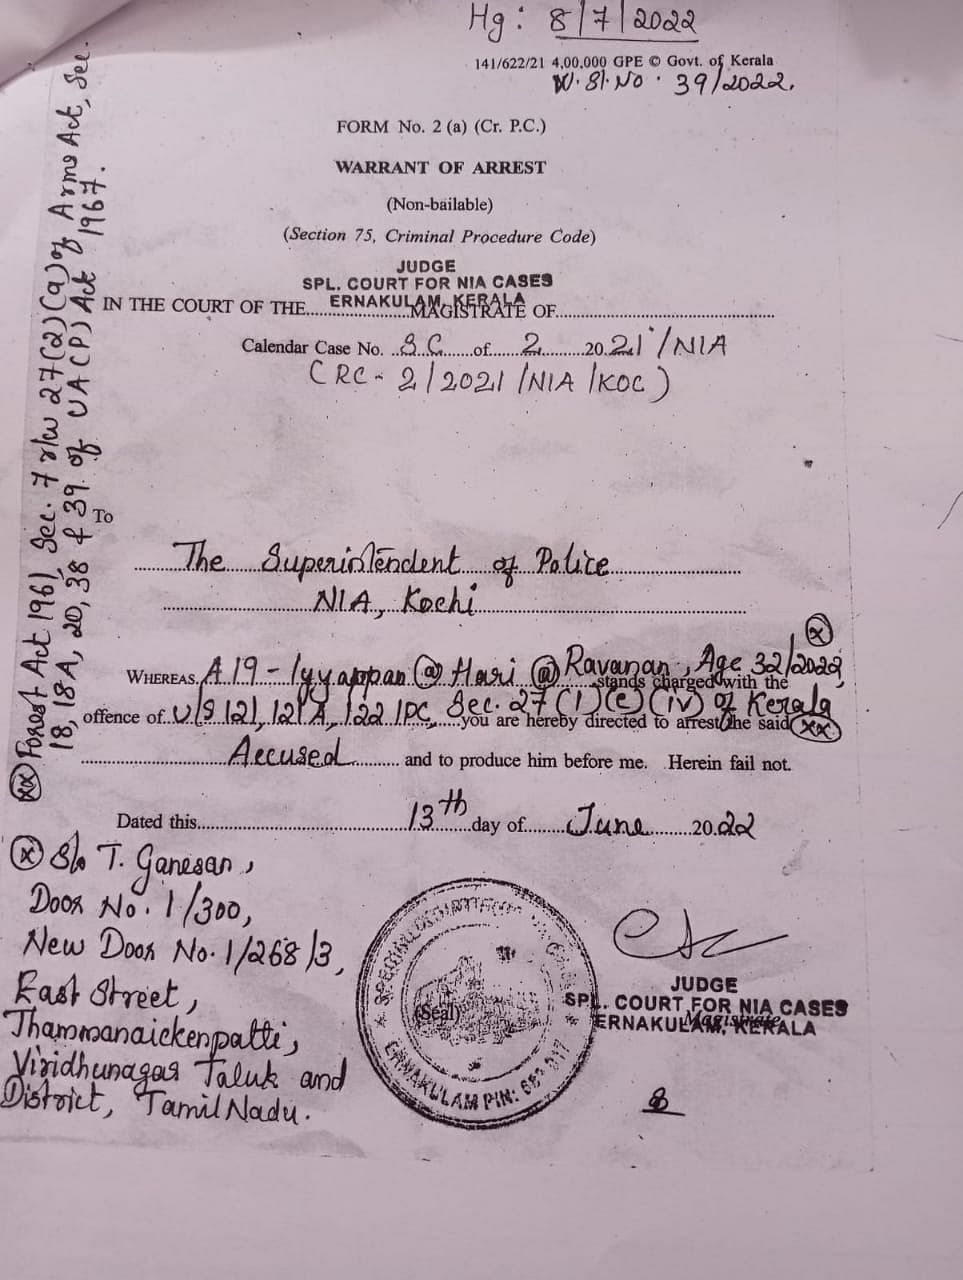 Hg: 8/7/2022
141/622/21 4,00,000 GPE © Govt. of Kerala
W. Sl. No. 39/2022.
FORM No. 2 (a) (Cr. P.C.)
WARRANT OF ARREST
(Non-bailable)
(Section 75, Criminal Procedure Code)
JUDGE
SPL. COURT FOR NIA CASES
ERNAKULAM, KERALA
IN THE COURT OF THE MAGISTRATE OF
Calendar Case No. S.C. of 2 2021/NIA
(RC - 2/2021/NIA/KOC)
To
The Superintendent of Police
NIA, Kochi
WHEREAS A19 - Iyyappan @ Hari @ Ravanan, Age 32/2022, (x) stands charged with the
offence of U/S 121, 121A, 122 IPC, Sec. 27 (1)(e)(iv) of Kerala (xx) you are hereby directed to arrest the said
Accused and to produce him before me. Herein fail not.
Dated this 13th day of June 2022
(x) S/o T. Ganesan,
Door No. 1/300,
New Door No. 1/268/3,
East Street,
Thammanaickenpatti,
Viridhunagar Taluk and
District, Tamil Nadu.
(Seal)
ERNAKULAM PIN:
JUDGE
SPL. COURT FOR NIA CASES
ERNAKULAM, KERALA
Magistrate
(xx) Forest Act 1961, Sec. 7 r/w 27(2)(a) of Arms Act, Sec.
18, 18A, 20, 38 & 39 of UA(P) Act 1967.